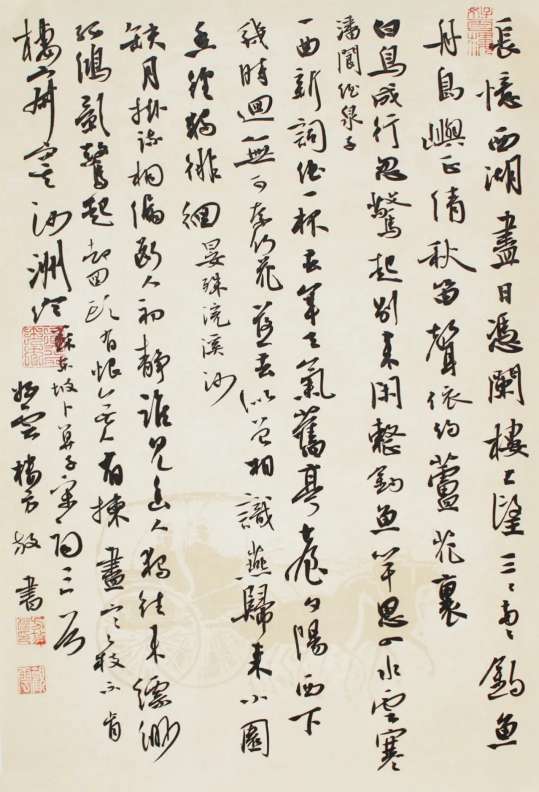 長憶西湖盡日憑闌樓上望三〻兩〻釣魚
舟島嶼正清秋笛聲依約蘆花裏
白鳥成行忽驚起別來閑整釣魚竿思入水雲寒
潘閬酒泉子
一曲新詞酒一杯去年天氣舊亭臺夕陽西下
幾時迴無可奈何花落去似曾相識燕歸來小園
香徑獨徘徊 晏殊浣溪沙
缺月掛疏桐漏斷人初靜誰見幽人獨往來縹緲
孤鴻影驚起卻回頭有恨無人省揀盡寒枝不肯
棲寂寞沙洲冷 蘇東坡卜算子宋詞三首
書